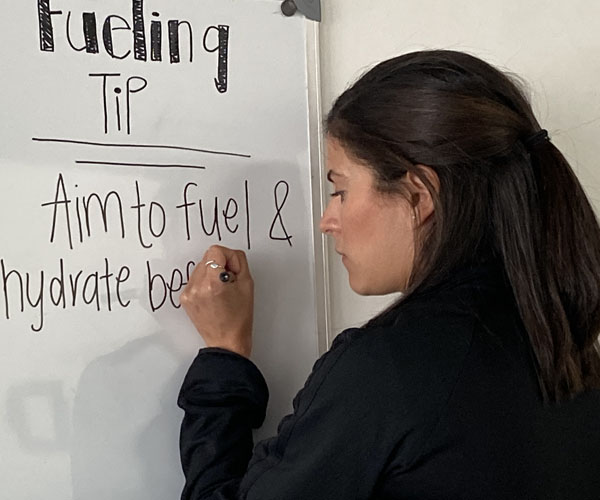 Fueling
Tip
Aim to fuel &
hydrate bef